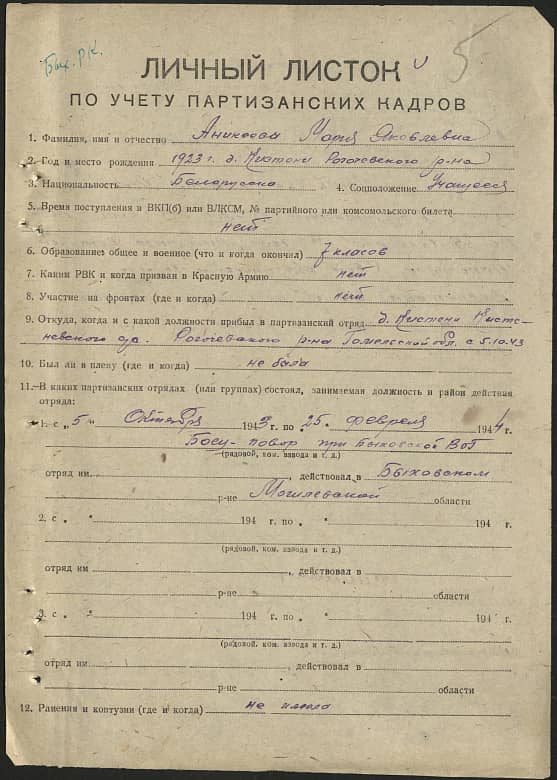 Бых. РК.
5
ЛИЧНЫЙ ЛИСТОК
ПО УЧЕТУ ПАРТИЗАНСКИХ КАДРОВ
1. Фамилия, имя и отчество Аникеева Мария Яковлевна
2. Год и место рождения 1923 г. д. Кистени Рогочевского р-на
3. Национальность Белорусска 4. Соцположение Учащееся
5. Время поступления в ВКП(б) или ВЛКСМ, № партийного или комсомольского билета
нет
6. Образование общее и военное (что и когда окончил) 7 класов
7. Каким РВК и когда призван в Красную Армию нет
8. Участие на фронтах (где и когда) нет
9. Откуда, когда и с какой должности прибыл в партизанский отряд д. Кистени Кисте-
невского с/с. Рогочевского р-на Гомельской обл. с 5.10.43
10. Был ли в плену (где и когда) не была
11. В каких партизанских отрядах (или группах) состоял, занимаемая должность и район действия
отряда:
1. с „5" Октября 1943 г. по „25" февраля 1944 г.
Боец-повор при Быховской ВОГ
(рядовой, ком. взвода и т. д.)
отряд им. , действовал в Быховском
р-не Могилевской области
2. с „ " 194 г. по „ " 194 г.
(рядовой, ком. взвода и т. д.)
отряд им , действовал в
р-не области
3. с „ " 194 г. по „ " 194 г.
(рядовой, ком. взвода и т. д.)
отряд им. , действовал в
р-не области
12. Ранения и контузии (где и когда) не имела